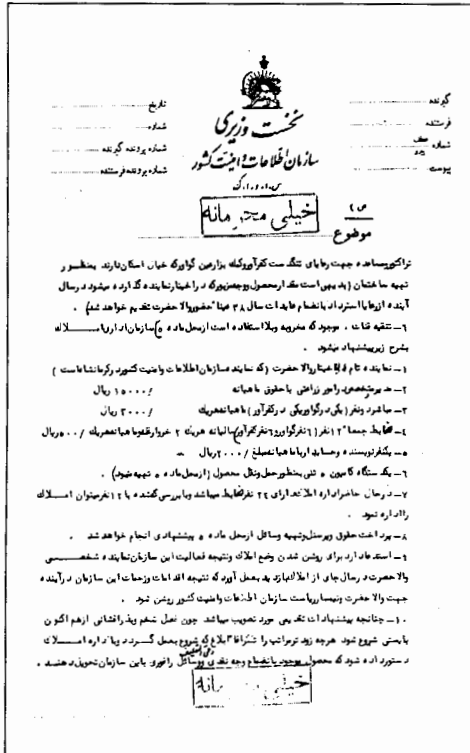 نخست وزیری
سازمان اطلاعات و امنیت کشور
س.ا.و.ا.ک
گیرنده
فرستنده
شماره
پیوست
تاریخ
شماره
شماره پرونده گیرنده
شماره پرونده فرستنده
خیلی محرمانه
ص ۲
موضوع
تراکتور مساعده جهت رعایای تنگدست کفرآور و کمک بزارعین گواور که خیال اسکان دارند بمنظور
تهیه ساختمان (بدیهی است مقدار محصول و وجهیزیور که در اختیار نماینده گذارده میشود در سال
آینده از رعایا استرداد بانضمام عایدات سال ۳۸ عینا حضور والاحضرت تقدیم خواهد شد) .
۶- تنقیه قنات موجود که مخروبه و بلا استفاده است از محل ماده ۵) سازمان اداری املاک
بشرح زیر پیشنهاد میشود .
۱- نماینده تام الاختیار والاحضرت (که نماینده سازمان اطلاعات و امنیت کشور در کرمانشاه است)
۲- مدیر متخصص در امور زراعتی با حقوق ماهیانه /۱۵۰۰۰ ریال
۳- مباشر دو نفر (یکی در گواور یکی در کفرآور) ماهیانه هریک /۳۰۰۰ ریال
۴- ضابط جمعا ۱۲ نفر (۶ نفر گواور و ۶ نفر کفرآور) سالیانه هریک ۲ خروار غله و ماهیانه هریک /۵۰۰ ریال
۵- یکنفر نویسنده و حسابدار با ماهیانه مبلغ /۲۰۰۰ ریال
۶- یک دستگاه کامیون ۵ تنی بمنظور حمل و نقل محصول (از محل ماده ۵ تهیه شود) .
۷- در حال حاضر اداره املاک دارای ۲۲ نفر ضابط میباشد و با بررسی کننده با ۱۲ نفر میتوان املاک
را اداره نمود .
۸- پرداخت حقوق و پرسنل و تهیه وسائل از محل ماده ۵ پیشنهادی انجام خواهد شد .
۹- استدعا دارد برای روشن شدن وضع املاک و نتیجه فعالیت این سازمان نماینده شخصی
والاحضرت در سال جاری از املاک بازدید بعمل آورد که نتیجه اقدامات و زحمات این سازمان در آینده
جهت والاحضرت و تیمسار ریاست سازمان اطلاعات و امنیت کشور روشن شود .
۱۰- چنانچه پیشنهادات تقدیمی مورد تصویب میباشد چون فصل شخم و بذر افشانی از هم اکنون
بایستی شروع شود هرچه زودتر مراتب را تلگرافا ابلاغ که شروع بعمل گردد و باداره املاک
دستور داده شود که محصول موجود بانضمام وجه نقدی و وسائل را فوری باین سازمان تحویل دهند .
خیلی محرمانه